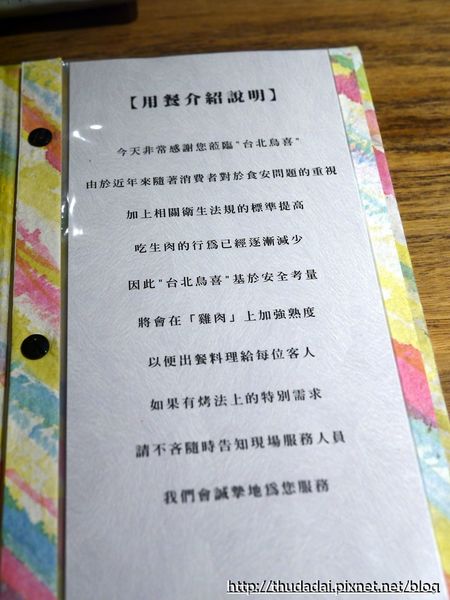 【用餐介紹說明】
今天非常感謝您蒞臨"台北鳥喜"
由於近年來隨著消費者對於食安問題的重視
加上相關衛生法規的標準提高
吃生肉的行為已經逐漸減少
因此"台北鳥喜"基於安全考量
將會在「雞肉」上加強熟度
以便出餐料理給每位客人
如果有烤法上的特別需求
請不吝隨時告知現場服務人員
我們會誠摯地為您服務
http://thudadai.pixnet.net/blog